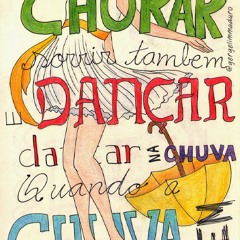 CHORAR
sorrir também
E DANÇAR
dançar NA CHUVA
Quando a
CHUVA
@gergelimmaduro